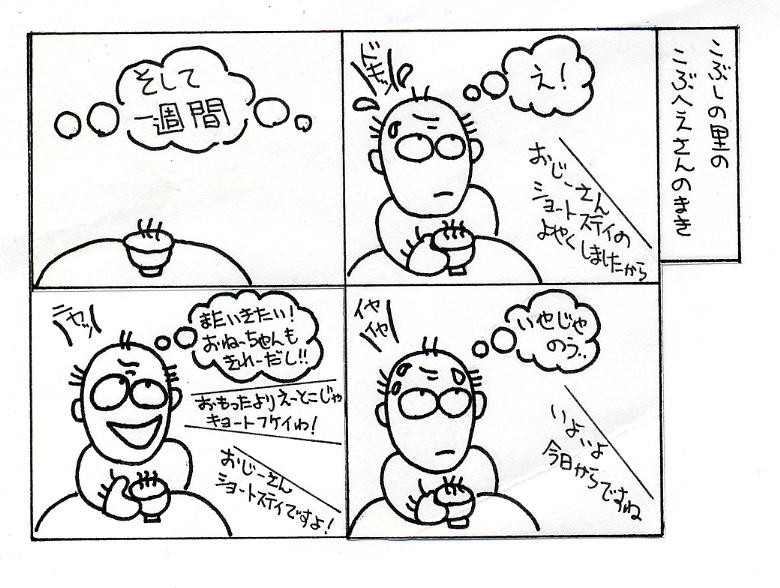 こぶしの里の
こぶへえさんのまき
え！
ドキッ
おじーさん
ショートステイの
よやくしましたから
いやじゃ
のう..
イヤ
イヤ
いよいよ
今日からですね
そして
一週間
またいきたい！
おねーちゃんも
きれーだし!!
ニヤッ
おもったよりえーとこじゃ
キョートフケイわ！
おじーさん
ショートステイですよ！